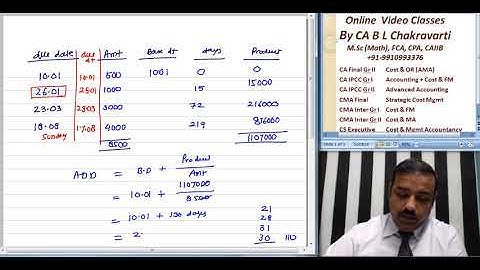 Online Video Classes
By CA B L Chakravarti
M.Sc (Math), FCA, CPA, CAIIB
+91-9910993376
CA Final Gr II Cost & OR (AMA)
CA IPCC Gr I Accounting + Cost & FM
CA IPCC Gr II Advanced Accounting
CMA Final Strategic Cost Mgmt
CMA Inter Gr I Cost & FM
CMA Inter Gr II Cost & MA
CS Executive Cost & Mgmt Accountancy
due date due dt Amt Base dt days Product
10.01 10.01 500 1001 0 0
26.01 2501 1000 15 15000
23.03 2303 3000 72 216000
18.08 17.08 4000 219 876000
Sunday
8500 1107000
ADD = B.D + Product
Amt
= 10.01 + 1107000
8500
= 10.01 + 130 days
= 2
21
28
31
30 110